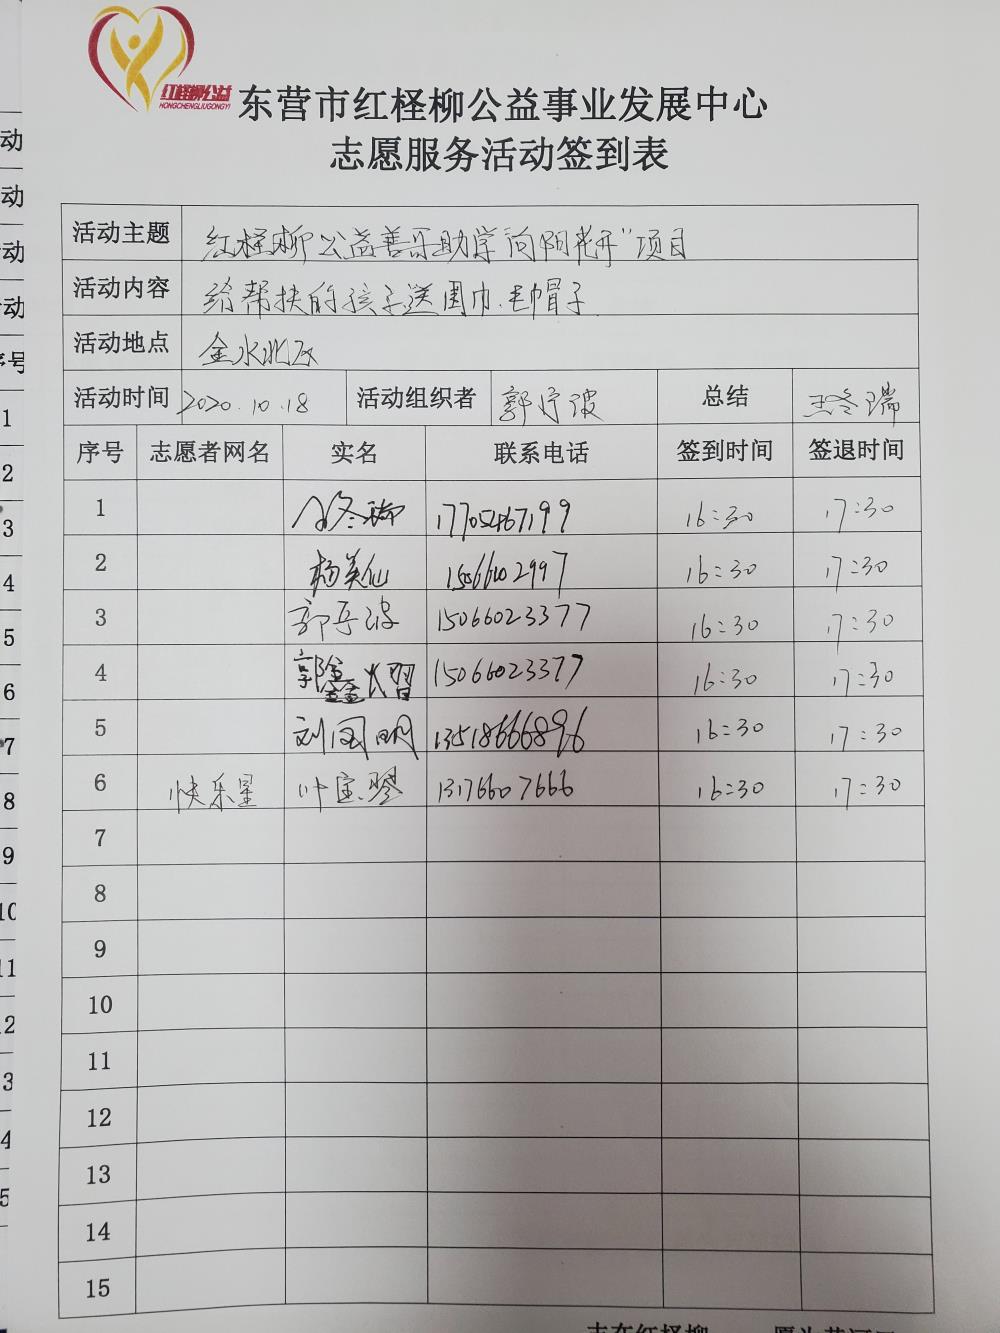 红柽柳公益
HONGCHENGLIUGONGYI
东营市红柽柳公益事业发展中心
志愿服务活动签到表
活动主题 红柽柳公益善行助学"向阳花开"项目
活动内容 给帮扶的孩子送围巾、毛帽子
活动地点 金水北区
活动时间 2020.10.18 活动组织者 郭 波 总结 王冬瑞
序号 志愿者网名 实名 联系电话 签到时间 签退时间
1 17705467199 16:30 17:30
2 杨美仙 15066029997 16:30 17:30
3 郭 波 15066023377 16:30 17:30
4 郭鑫 15066023377 16:30 17:30
5 刘国明 13518666896 16:30 17:30
6 快乐星 叶宝琴 13176607666 16:30 17:30
7
8
9
10
11
12
13
14
15
动
动
动
动
序号
1
2
3
4
5
6
7
8
9
10
11
12
13
14
15